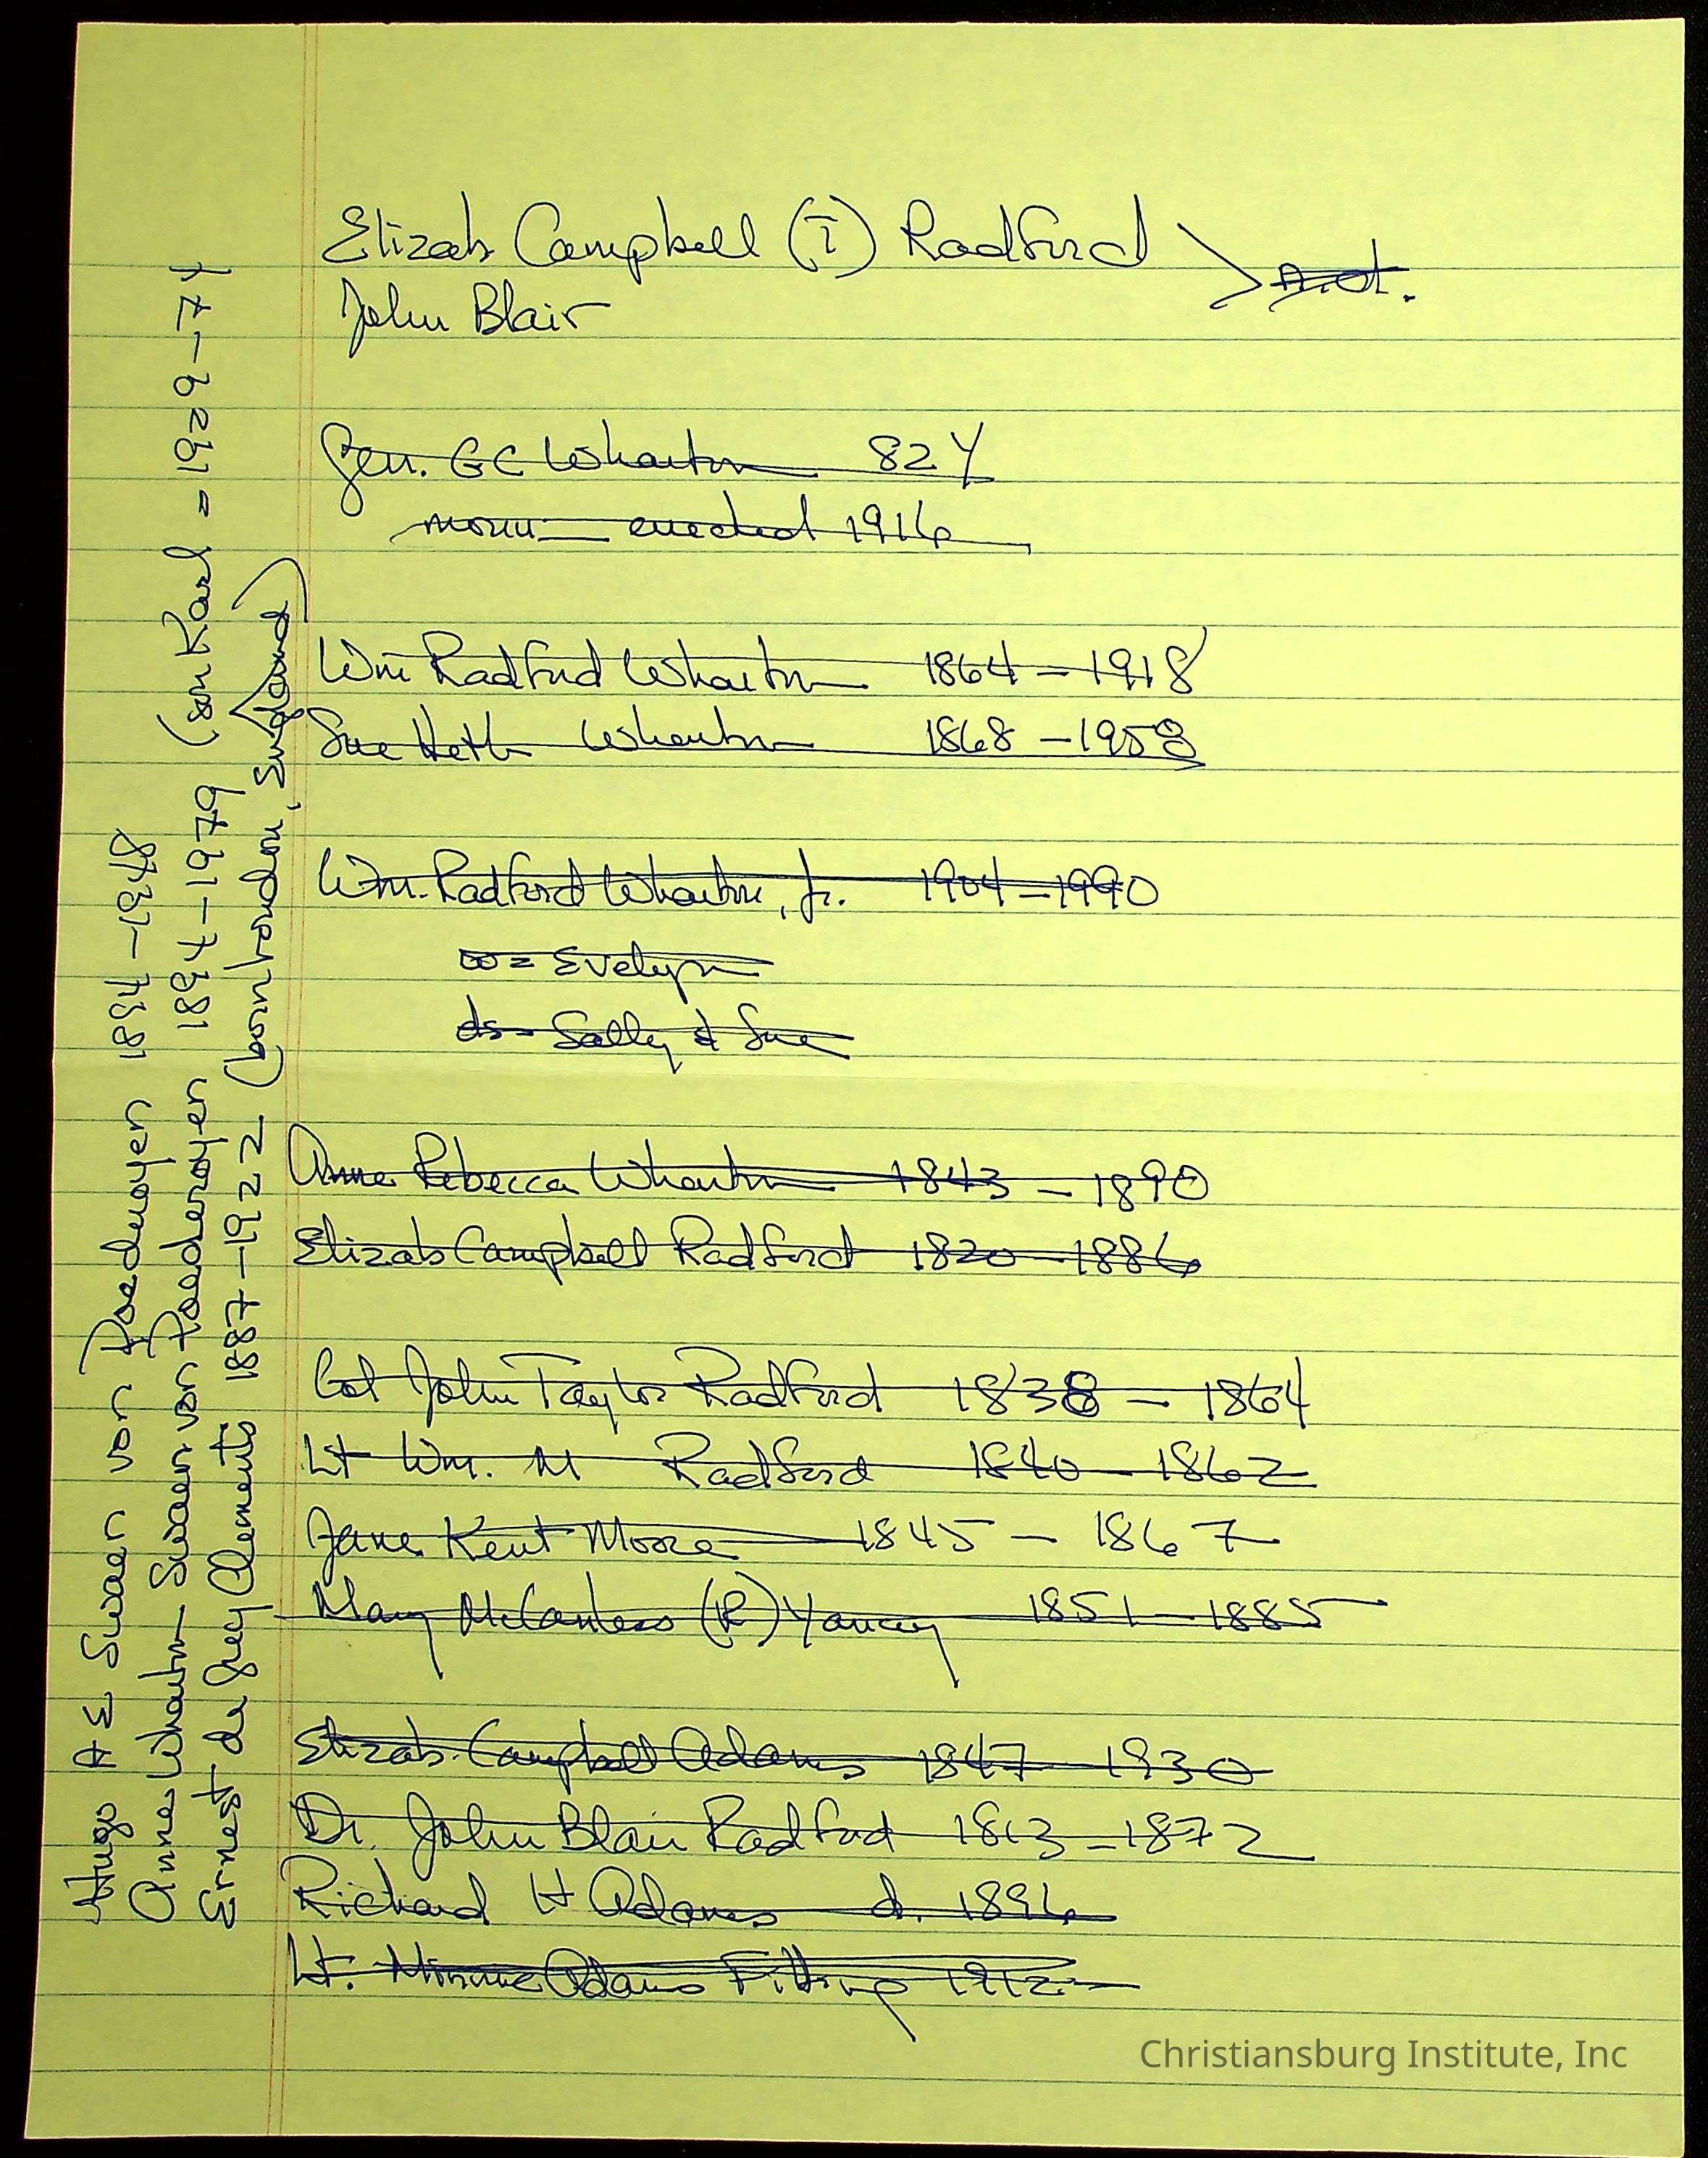 Elizab Campbell (T) Radford
John Blair
n.d.
Gen. GC Wharton 82 Y
monu— erected 1916
Wm Radford Wharton 1864 – 1918
Sue Heth Wharton 1868 – 1958
Wm. Radford Wharton, Jr. 1904 – 1990
w = Evelyn
ds - Sally & Sue
Anne Rebecca Wharton 1843 – 1890
Elizab Campbell Radford 1820 – 1886
Col John Taylor Radford 1838 – 1864
Lt Wm. M Radford 1840 – 1862
Jane Kent Moore 1845 – 1867
Mary McCanless (R) Yancey 1851 – 1885
Elizab. Campbell Adams 1847 – 1930
Dr. John Blair Radford 1813 – 1872
Richard H Adams d. 1896
Lt. Minnie Adams Fitting 1912 –
Hugo A E Swaen von Poederoyen 1884 – 1978
Anne Wharton Swaen von Poederoyen 1884 – 1979 (son Karl = 1926 – 74)
Ernest de Guy Clements 1887 – 1922 (born London, England)
Christiansburg Institute, Inc